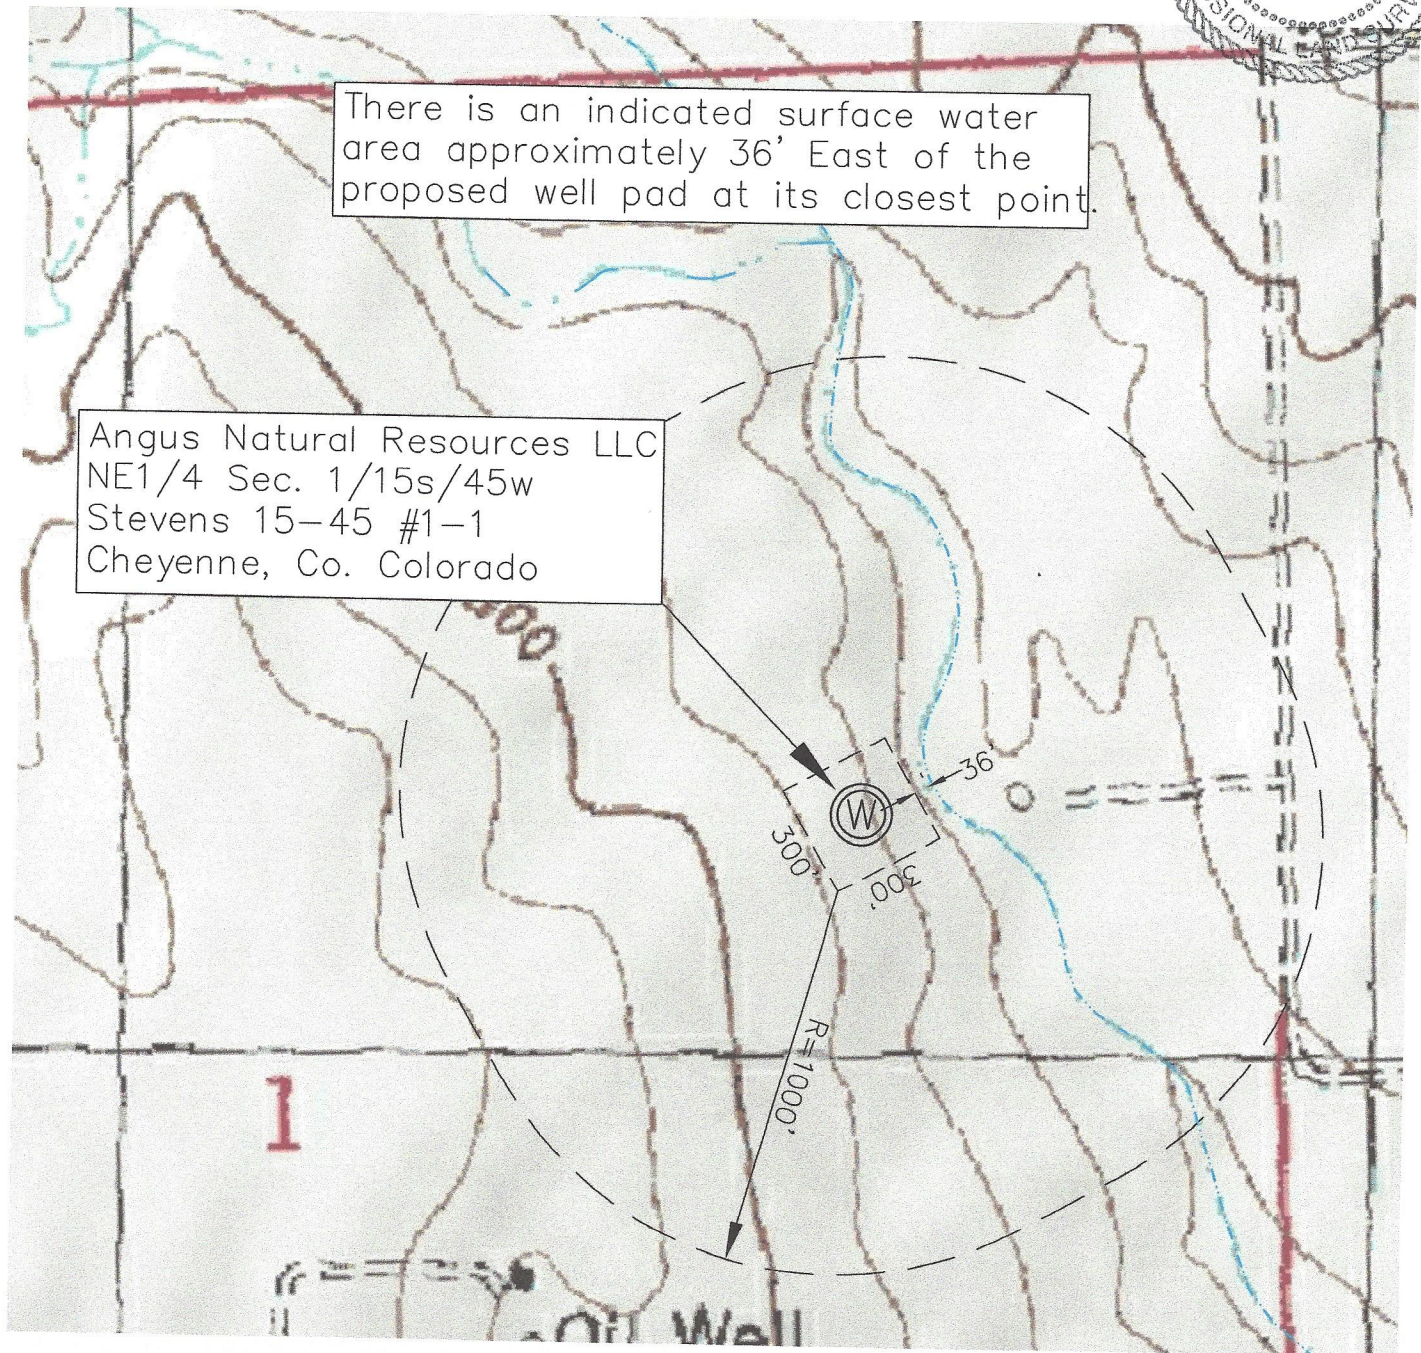 SIONAL LAND SURV
There is an indicated surface water
area approximately 36' East of the
proposed well pad at its closest point.
Angus Natural Resources LLC
NE1/4 Sec. 1/15s/45w
Stevens 15-45 #1-1
Cheyenne, Co. Colorado
36'
W
300'
300'
R=1000'
1
Oil Well